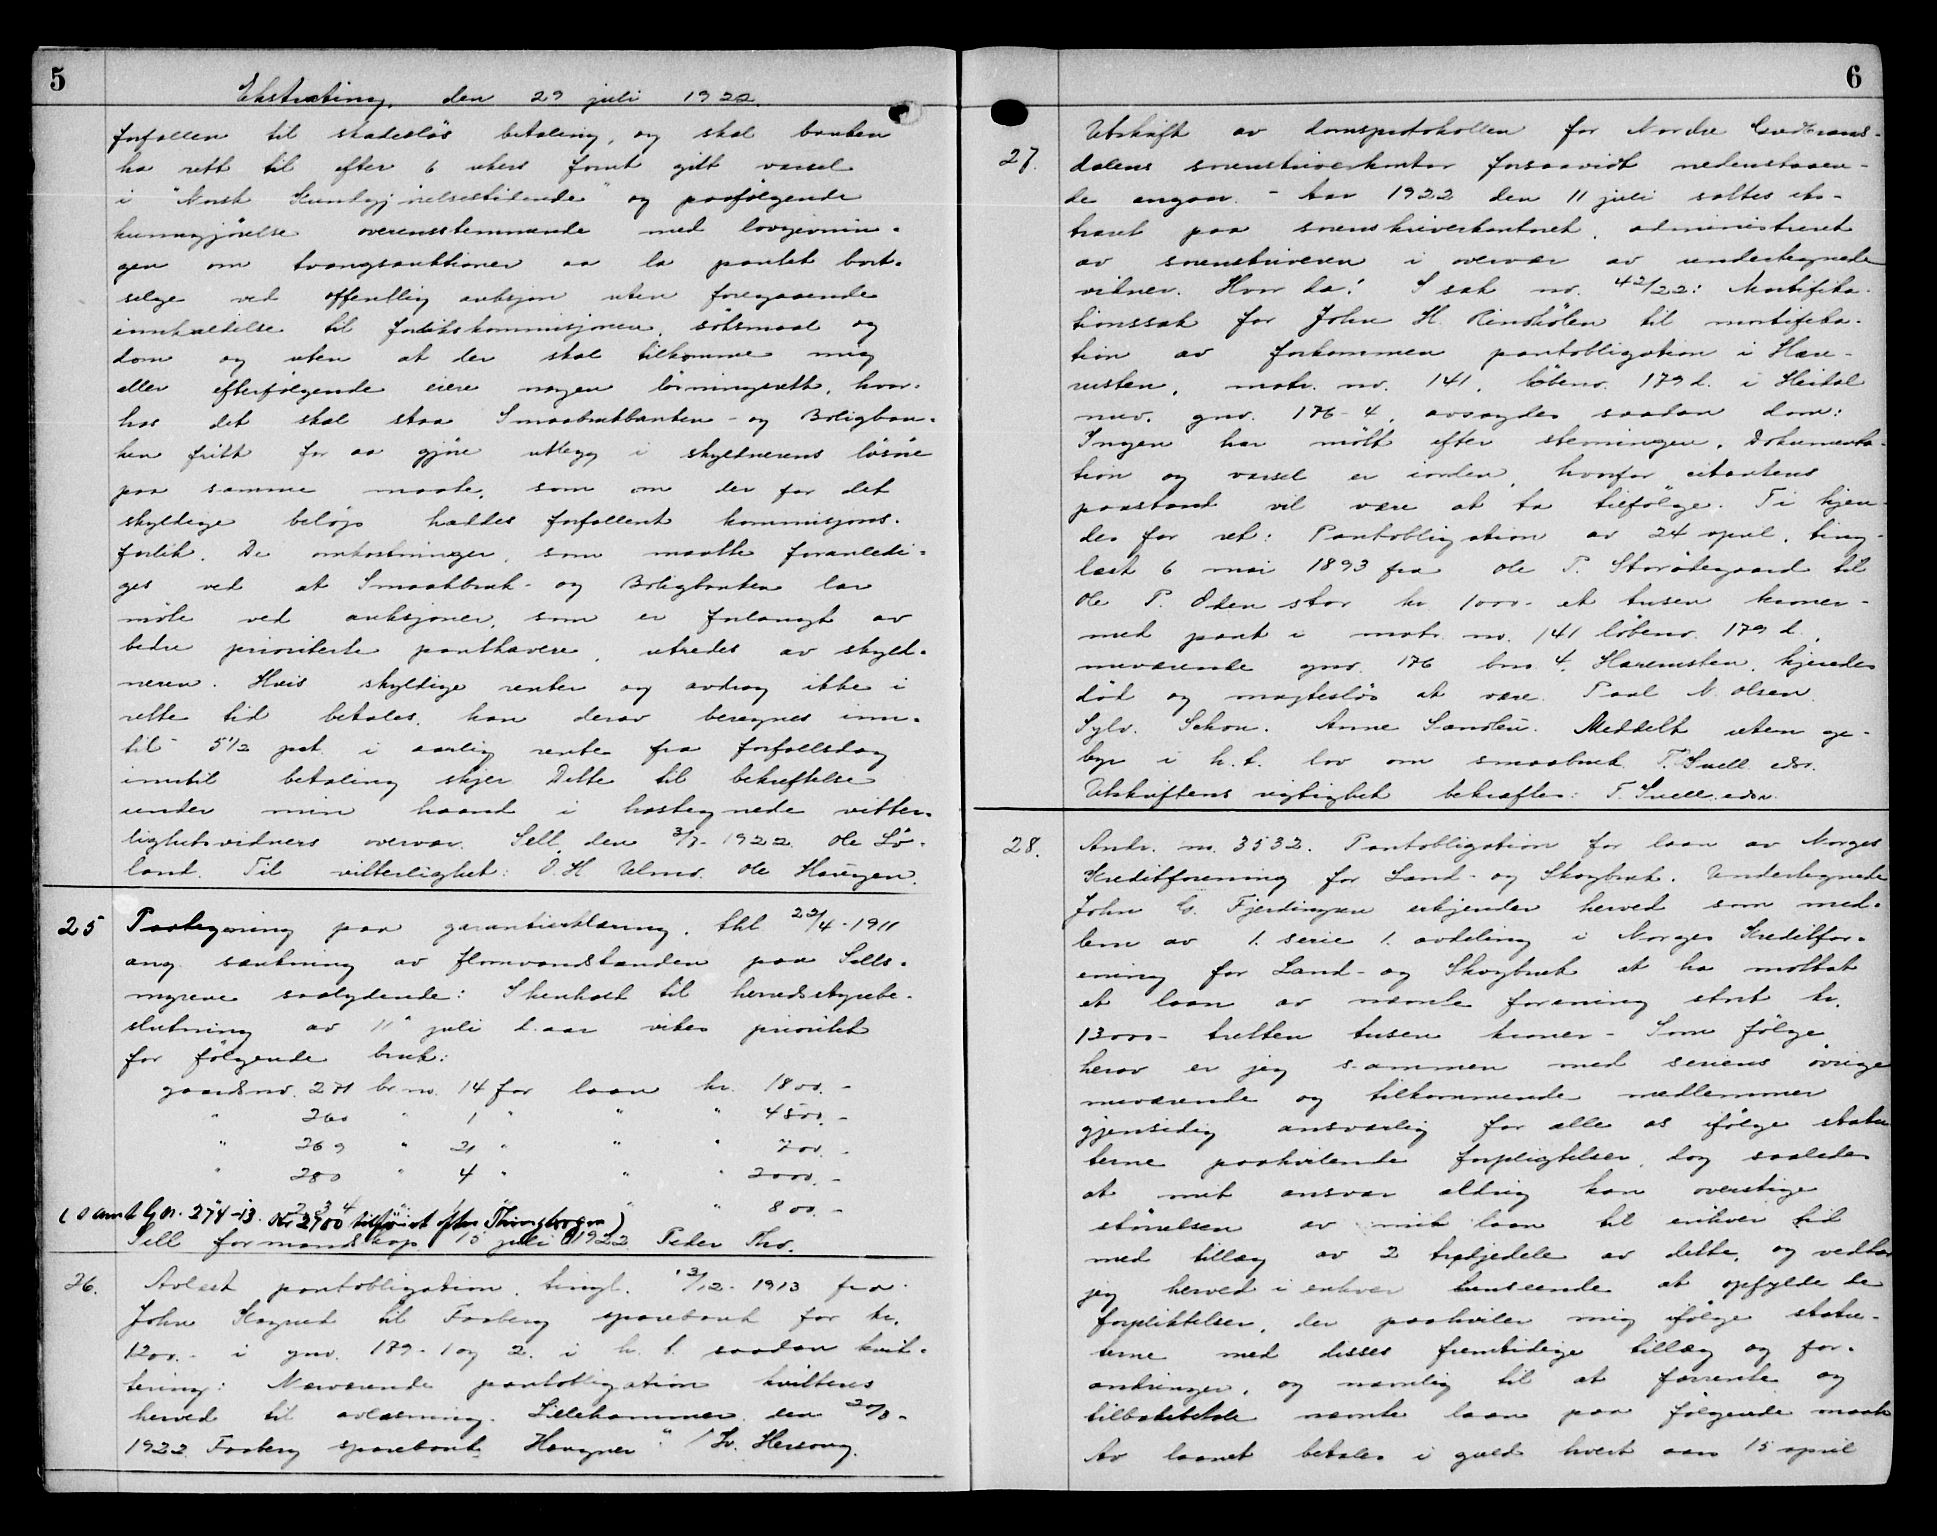 5
Ekstrating, den 29 juli 1922.
forfallen til skadesløs betaling, og skal banken
ha rett til efter 6 ukers forut gitt varsel
i "Norsk Kundgjørelsestidende" og paafølgende
kunngjørelse overensstemmende med lovgivnin-
gen om tvangsauktioner aa la pantet bort-
selge ved offentlig auksjon uten foregaaende
innkaldelse til forlikskommisjonen, søksmaal og
dom og uten at der skal tilkomme mig
eller efterfølgende eiere nogen løsningsrett, hvor-
hos det skal staa Smaabrukbanken- og Boligban-
ken fritt for aa gjøre utlegg i skyldnerens løsøre
paa samme maate, som om der for det
skyldige beløp haddes forfallent kommisjons-
forlik. De omkostninger, som maatte foranledi-
ges ved at Smaabruk- og Boligbanken lar
møte ved auksjoner, som er forlangt av
bedre prioriterte panthavere, utredes av skyld-
neren. Hvis skyldige renter og avdrag ikke i
rette tid betales, kan derav beregnes inn-
til 5 1/2 pct. i aarlig rente fra forfallsdag
inntil betaling skjer Dette til bekreftelse
under min haand i hostegnede vitter-
lighetsvidners overvær. Sell, den 3/7-1922. Ole Lø-
land. Til vitterlighet: O. H. Ulmo. Ole Haugen.
25 Paategning paa garantierklæring, tkl 22/4-1911
ang. sænkning av flomvandstanden paa Sells-
myrene saalydende: I henhold til herredsstyrebe-
slutning av 11" juli d. aar vikes prioritet
for følgende bruk:
gaardsnr. 271 br.nr. 14 for laan kr. 1800.-
" 260 " 1 " " " 4500.-
" 269 " 21 " " " 700.-
" 280 " 4 " " " 2000.-
" 234 " " " 800.-
(samt G.n. 274-13. Kr 2700 tilføiet efter Thingbogen)
Sell formandskap 15 juli 1922 Peder Tho.
26. Avlæst pantobligation, tingl. 13/12-1913 fra
John Kragnes til Faaberg sparebank for kr.
1200.- i gnr. 189-1 og 2. i h. t. saadan kvit-
tering: Nærværende pantobligation kvitteres
herved til avlæsning. Lillehammer, den 20/7-
1922. Faaberg sparebank
6
27. Utskrift av domsprotokollen for Nordre Gudbrands-
dalens sorenskriverkontor forsaavidt nedenstaaen-
de angaar. - Aar 1922 den 11 juli sattes eks-
traret paa sorenskriverkontoret, administreret
av sorenskriveren i overvær av undertegnede
vidner. Hvor da: I sak nr. 42/22: Mortifika-
tionssak for John H. Rindhølen til mortifika-
tion av forkommen pantobligation i Hare-
rusten, matr. nr. 141, løbenr. 179 d. i Heidal
nuv. gnr. 176-4, avsagdes saadan dom:
Ingen har møtt efter stevningen. Dokumenta-
tion og varsel er iorden, hvorfor citantens
paastand vil være at ta tilfølge. Ti kjen-
des for ret: Pantobligation av 24 april, ting-
læst 6 mai 1893 fra Ole P. Storødegaard til
Ole P. Øden stor kr. 1000.- et tusen kroner-
med pant i matr. nr. 141 løbenr. 179 d.,
nuværende gnr. 176 bnr. 4. Harerusten, kjendes
død og magtesløs at være. Paal N. Olsen.
Sylv. Schou. Anne Sandbu. Meddelt uten ge-
byr i h. t. lov om smaabruk. T. Snell edsv.
Utskriftens rigtighet bekræftes: T. Snell. edsv.
28. Andr. nr. 3532. Pantobligation for laan av Norges
Kreditforening for Land- og Skogbruk. Undertegnede
John G. Fjerdingren erkjender herved som med-
lem av 1. serie 1. avdeling i Norges Kreditfor-
ening for Land- og Skogbruk at ha mottat
et laan av nævnte forening stort kr.
13000- tretten tusen kroner- Som følge
herav er jeg sammen med seriens øvrige
nuværende og tilkommende medlemmer
gjensidig ansvarlig for alle os ifølge statu-
terne paahvilende forpligtelser, dog saaledes
at mit ansvar aldrig kan overstige
størrelsen av mit laan til enhver tid
med tillæg av 2 tredjedele av dette, og vedtar
jeg herved i enhver henseende at opfylde de
forpliktelser, der paahviler mig ifølge statu-
terne med disses fremtidige tillæg og for-
andringer, og navnlig til at forrente og
tilbakebetale nævnte laan paa følgende maate
Av laanet betales i guld hvert aars 15 april